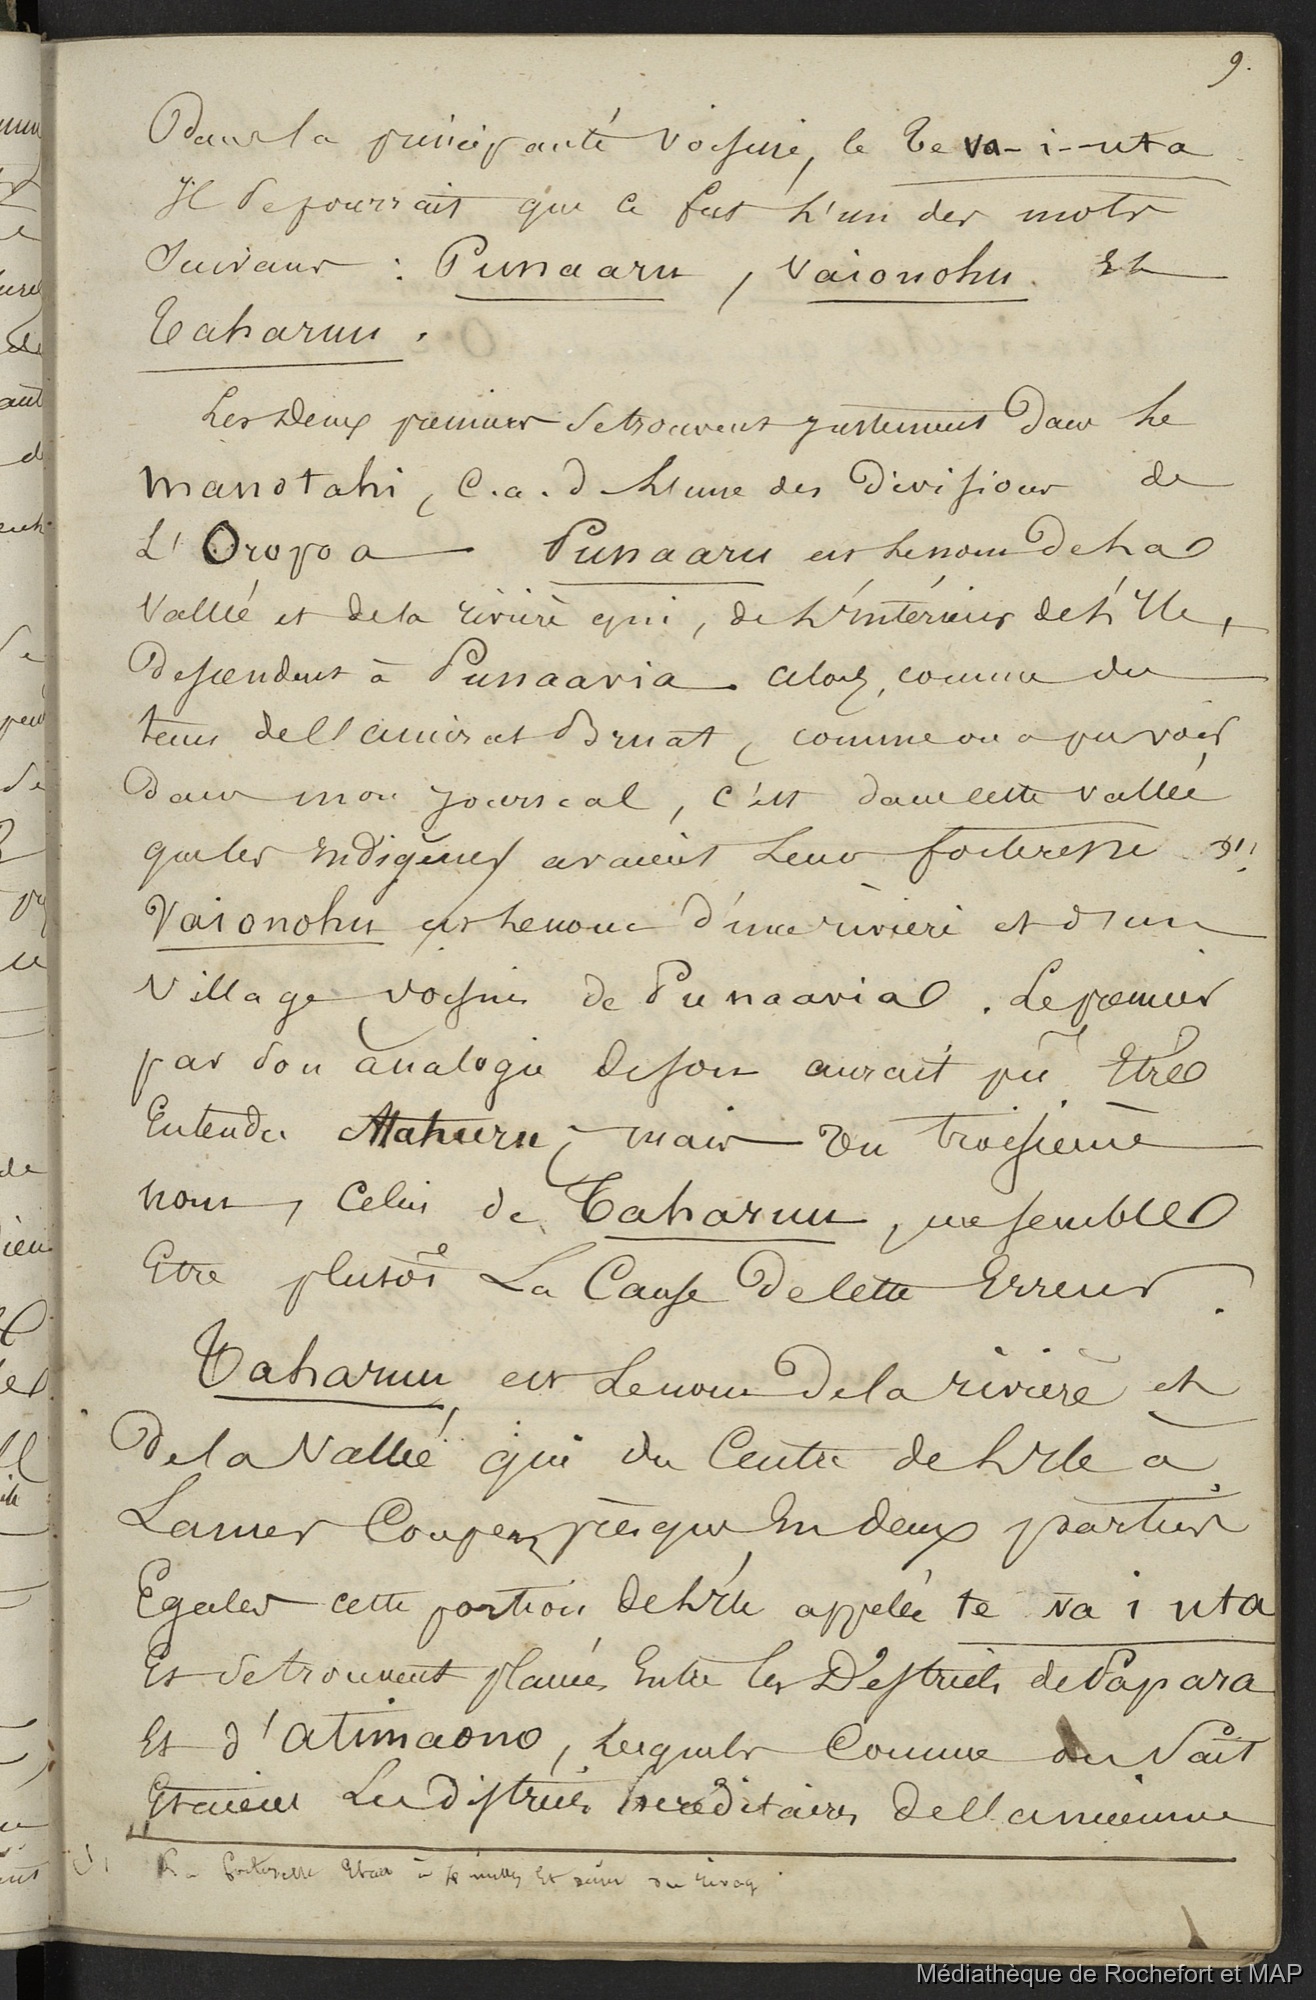 9.
Dans la principauté voisine, le Teva-i-uta
Il se pourrait que ce fut l'un des mots
Suivans : Punaaru, Vaionohu. Et
Taharuu.
Les deux premiers se trouvent justement dans le
Manotahi, c.a.d l'une des divisions de
L'Oropoa Punaaru est le nom de la
Vallée et de la rivière qui, de l'intérieur de l'Ile,
Descendent à Punaavia. alors, comme du
tems de l'amiral Bruat, comme on a pu voir
dans mon journal, c'est dans cette vallée
que les indigènes avaient leur forteresse
Vaionohu est le nom d'une rivière et d'un
Village voisin de Punaavia. Le premier
par son analogie de son aurait pu Etre
Entendu Atahuru, mais un troisième
nom, celui de Taharuu, me semble
Etre plutôt La Cause De cette Erreur.
Taharuu, est Le nom De la rivière et
De la Vallée qui du Centre de l'Ile à
La mer Coupent presque En deux parties
Egales cette portion de l'Ile appelée te va i uta
Et se trouvent placées Entre les Districts de Papara
Et d'Atimaono, lesquels Comme on Sait
Etaient Les districts héréditaires de l'ancienne
La forteresse Etait à milles Et du rivage
Médiathèque de Rochefort et MAP